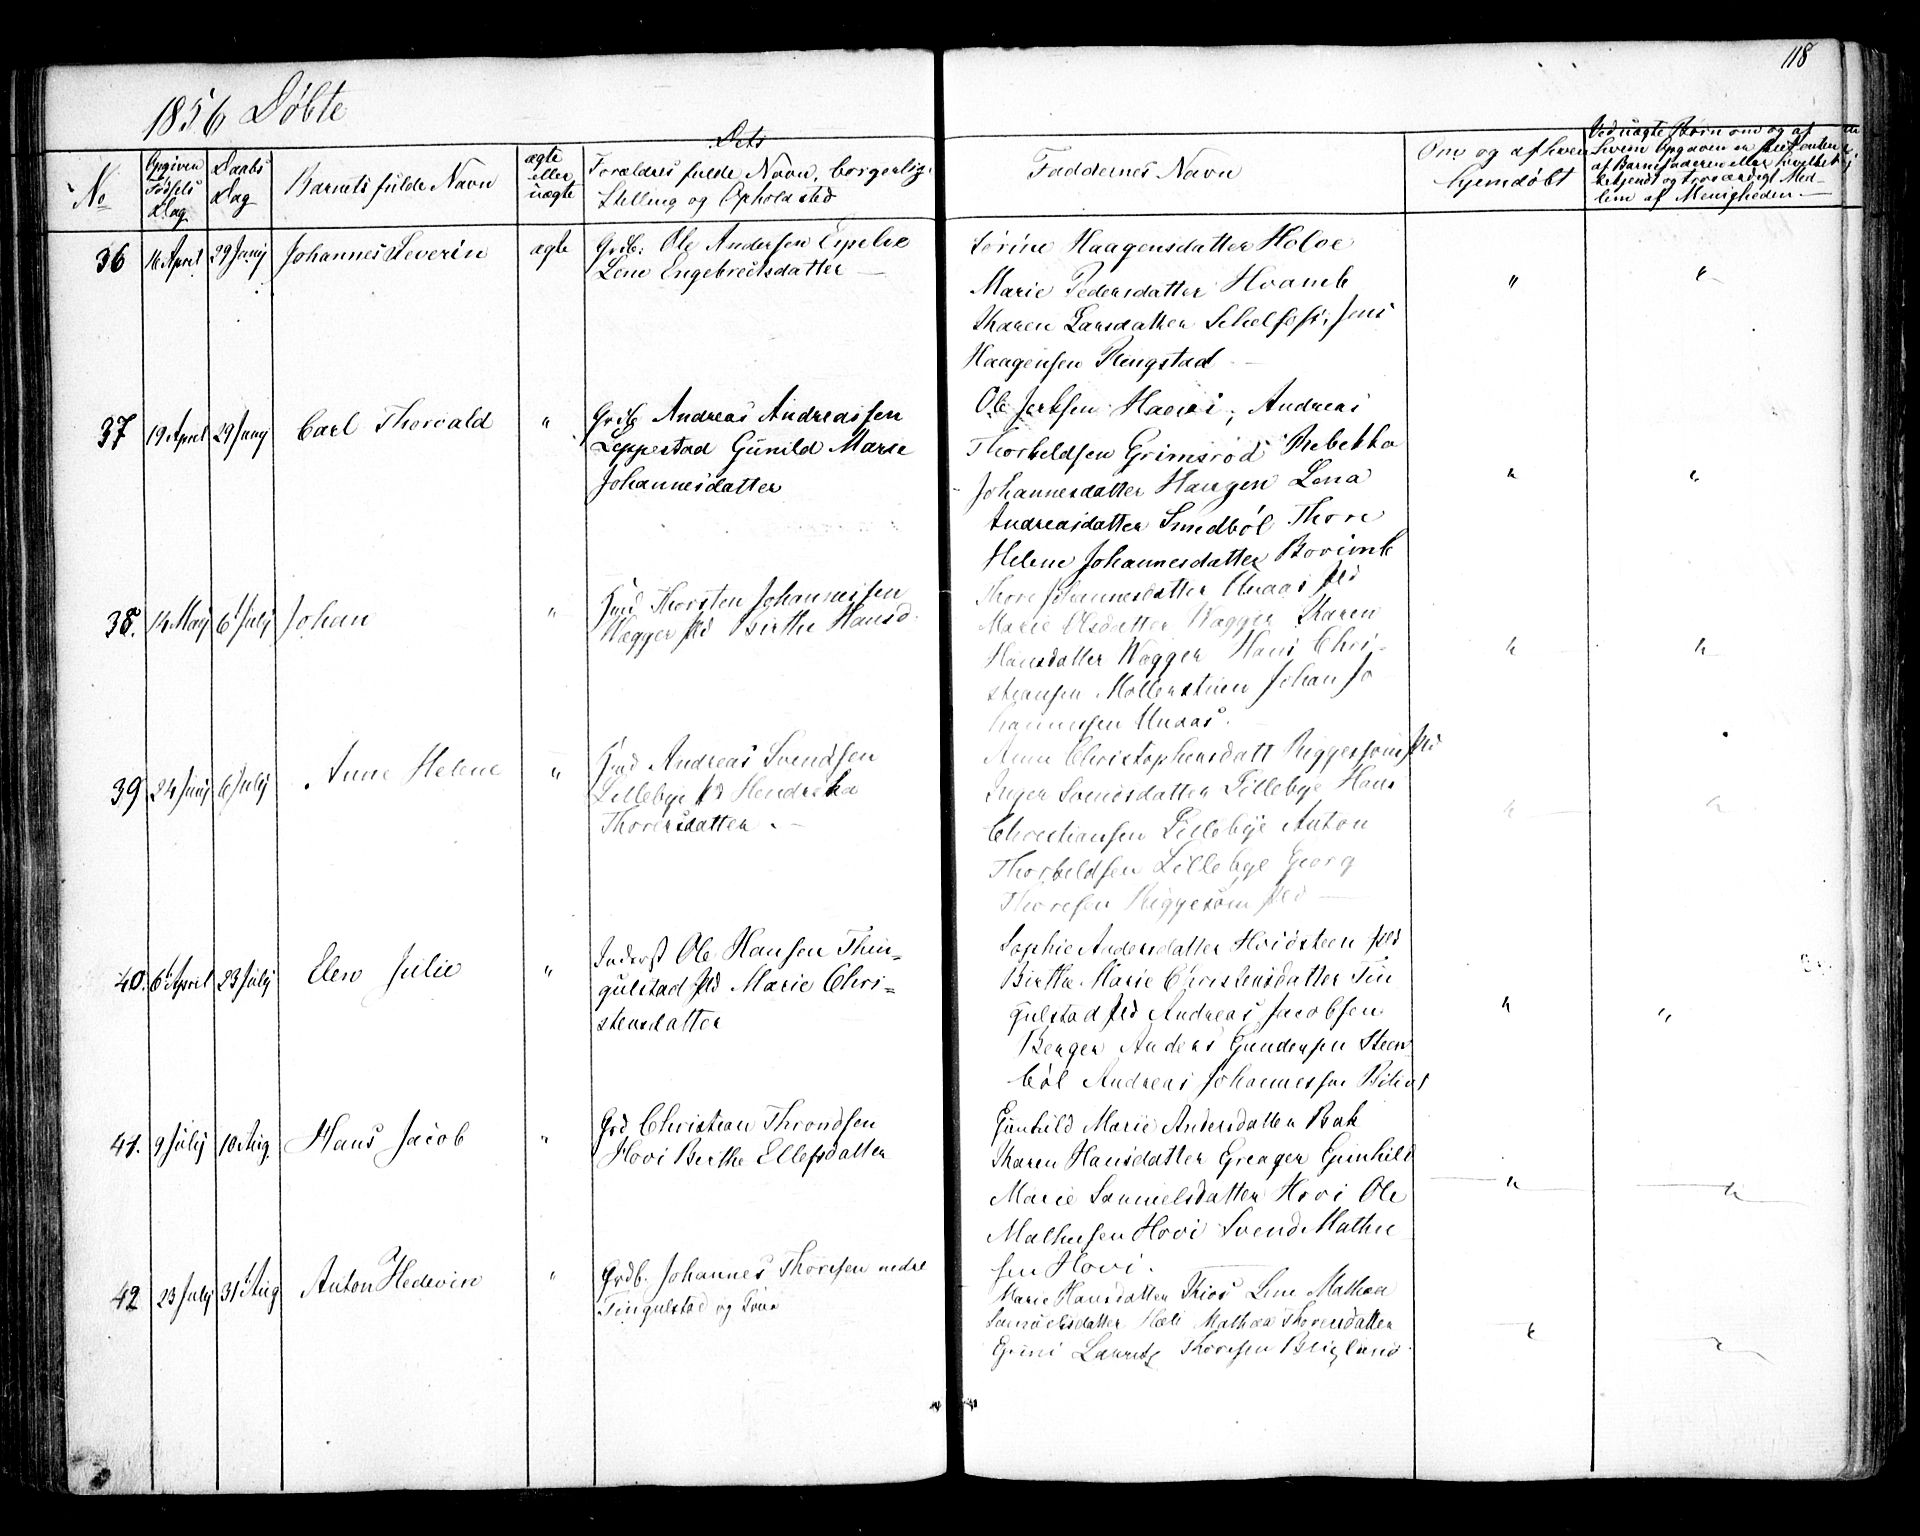 118
1856 Døbte
No
Opgiven Fødsels Dag
Daabs Dag
Barnets fulde Navn
ægte eller uægte
Dets
Forældres fulde Navn, borgerlig
Stilling og Opholdsted
Faddernes Navn
Om og af hvem
hjemdøbt
Ved uægte Børn om og af
hvem Opgaven er
af Barnefaderen eller hvilket
bekjendt og troværdigt Med-
lem af Menigheden
36 16 April 29 Junij Johannes Severin ægte Grdb. Ole Andersen Espelie
Lene Engebretsdatter
Sørine Haagensdatter Holoe
Marie Pedersdatter Hvamb " "
Karen Larsdatter Jens
Haagensen Ringstad
37 19 April 29 Junij Carl Thorvald " Grdb Andreas Andreassen
Leppestad Gunild Marie
Johannesdatter
Ole Andreas
Thorkeldsen Grimsrød Rebekka
Johannesdatter Haugen Lena " "
Andreasdatter Smedbøl Thore
Helene Johannesdatter
38. 14 May 6 July Johan " Gmd Thorsten Johannessen
Wagger Pld Birthe Hansd.
Thore Johannesdatter Unaas Pld
Marie Olsdatter Wagger Karen
Hansdatter Wagger Hans Chri- " "
stiansen Møllerstuen Johan Jo
hannessen Unaas.
39 24 Junij 6 July Anne Helene " Gmd Andreas Svendsen
Lillebye Pld Hendreka
Thorersdatter.
Anne Christophersdatt Riggesom Pld
Inger Svendsdatter Lillebye Hans
Christiansen Lillebye Anton " "
Thorkeldsen Lillebye Georg
Thoresen Riggesom Pld
40. 6 April 23 July Elen Julie " Inderst Ole Hansen Thin-
gulstad Pld Marie Chri-
stensdatter
Sophie Andersdatter Hvidsteen Pld
Birthe Marie Christensdatter Tin
gulstad Pld Andreas Jacobsen " "
Berger Anders Gundersen Steen
bøl Andreas Johannessen
41. 9 July 10 Aug. Hans Jacob " Grd Christian Throndsen
Hovi Berthe Ellefsdatter
Gunhild Marie Andersdatter Bak
Karen Hansdatter Greager Gunhild
Marie Samuelsdatter Hovi Ole " "
Mathesen Hovi Svend Mathe
sen Hovi.
42 23 July 31 Aug Anton Hedevin " Grdb. Johannes Thoresen nedre
Tingulstad og
Marie Hansdatter Lene Mathea
Samuelsdatter Mathea Thoresdatter
Lauritz Thoresen " "